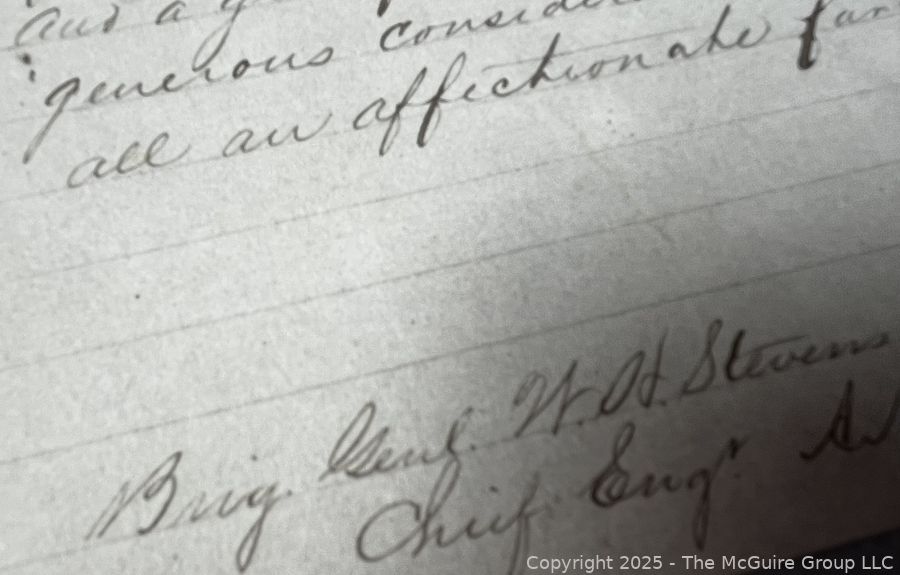 and a
generous
all an affectionate
Brig. Genl. W. H. Stevens
Chief Engr.
Copyright 2025 - The McGuire Group LLC